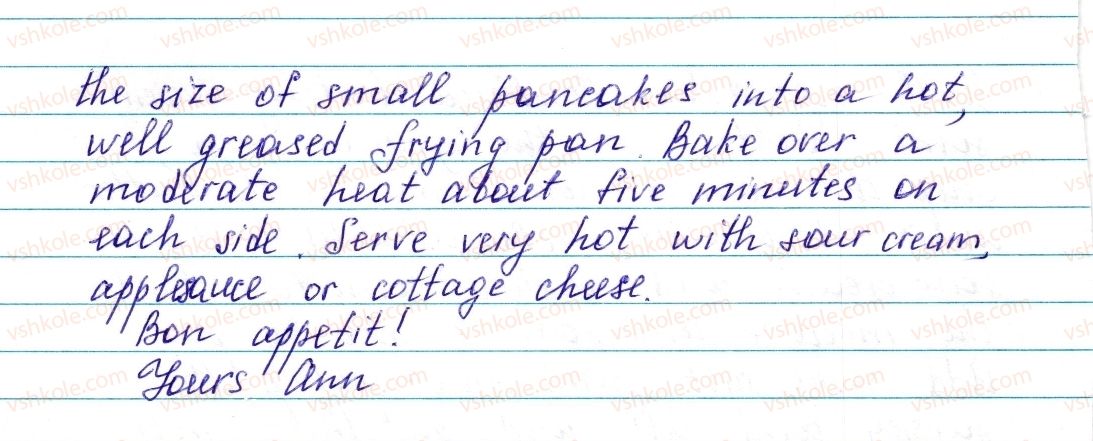 the size of small pancakes into a hot,
well greased frying pan. Bake over a
moderate heat about five minutes on
each side. Serve very hot with sour cream,
applesauce or cottage cheese.
Bon appetit!
Yours Ann